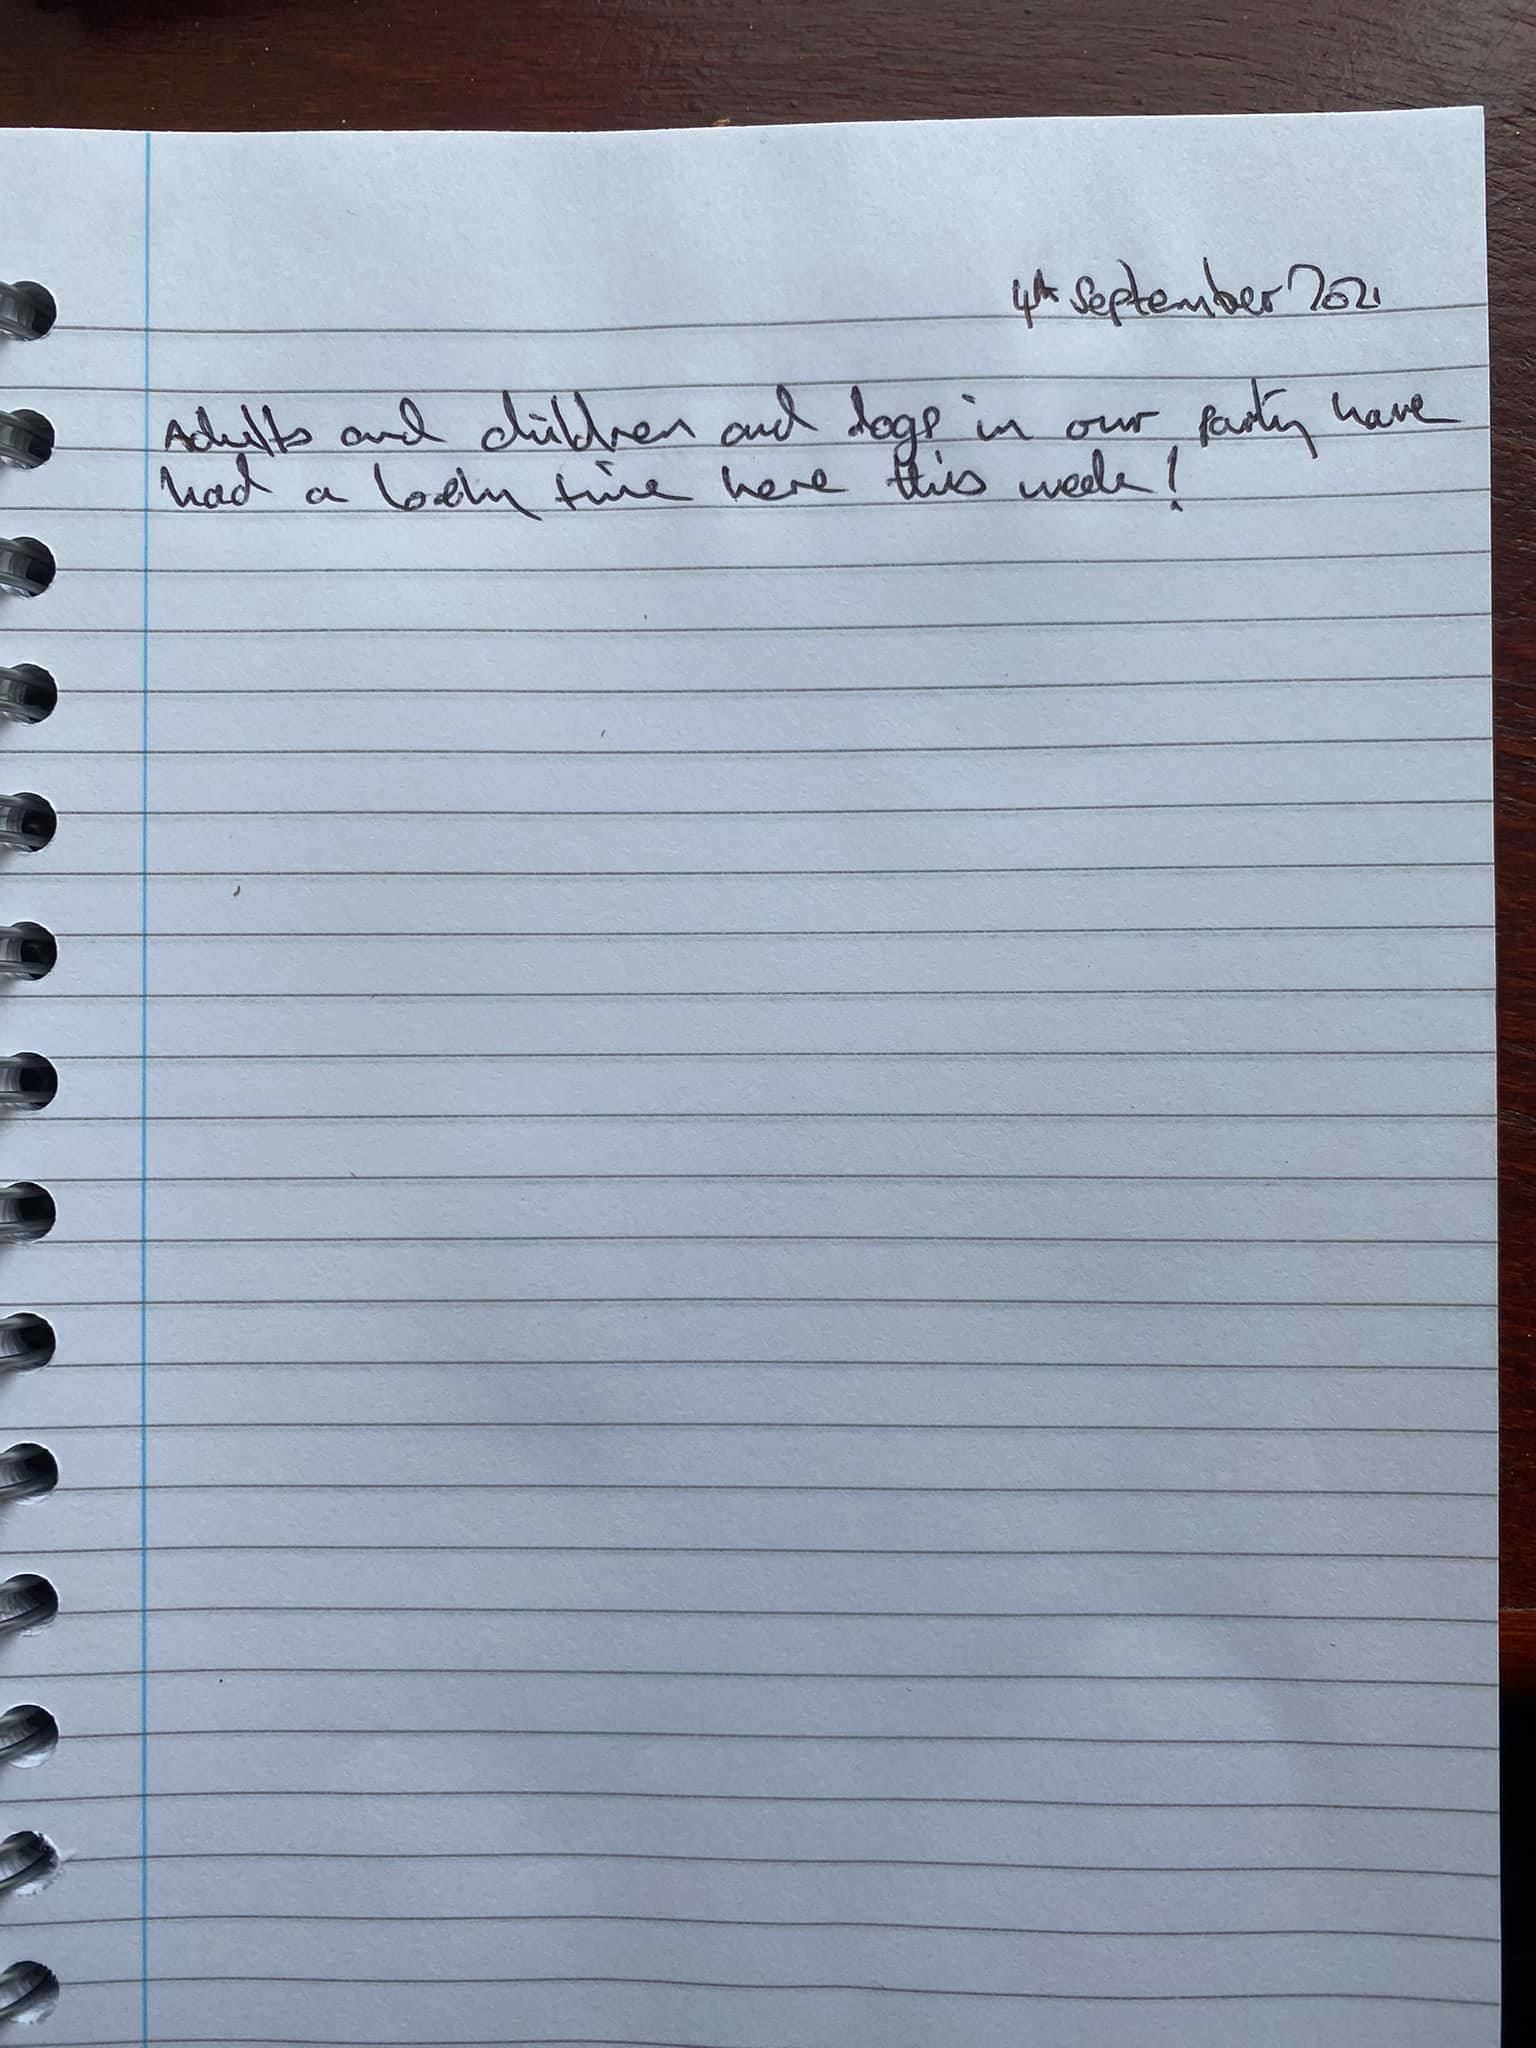 4th September 2021
Adults and children and dogs in our party have
had a lovely time here this week!